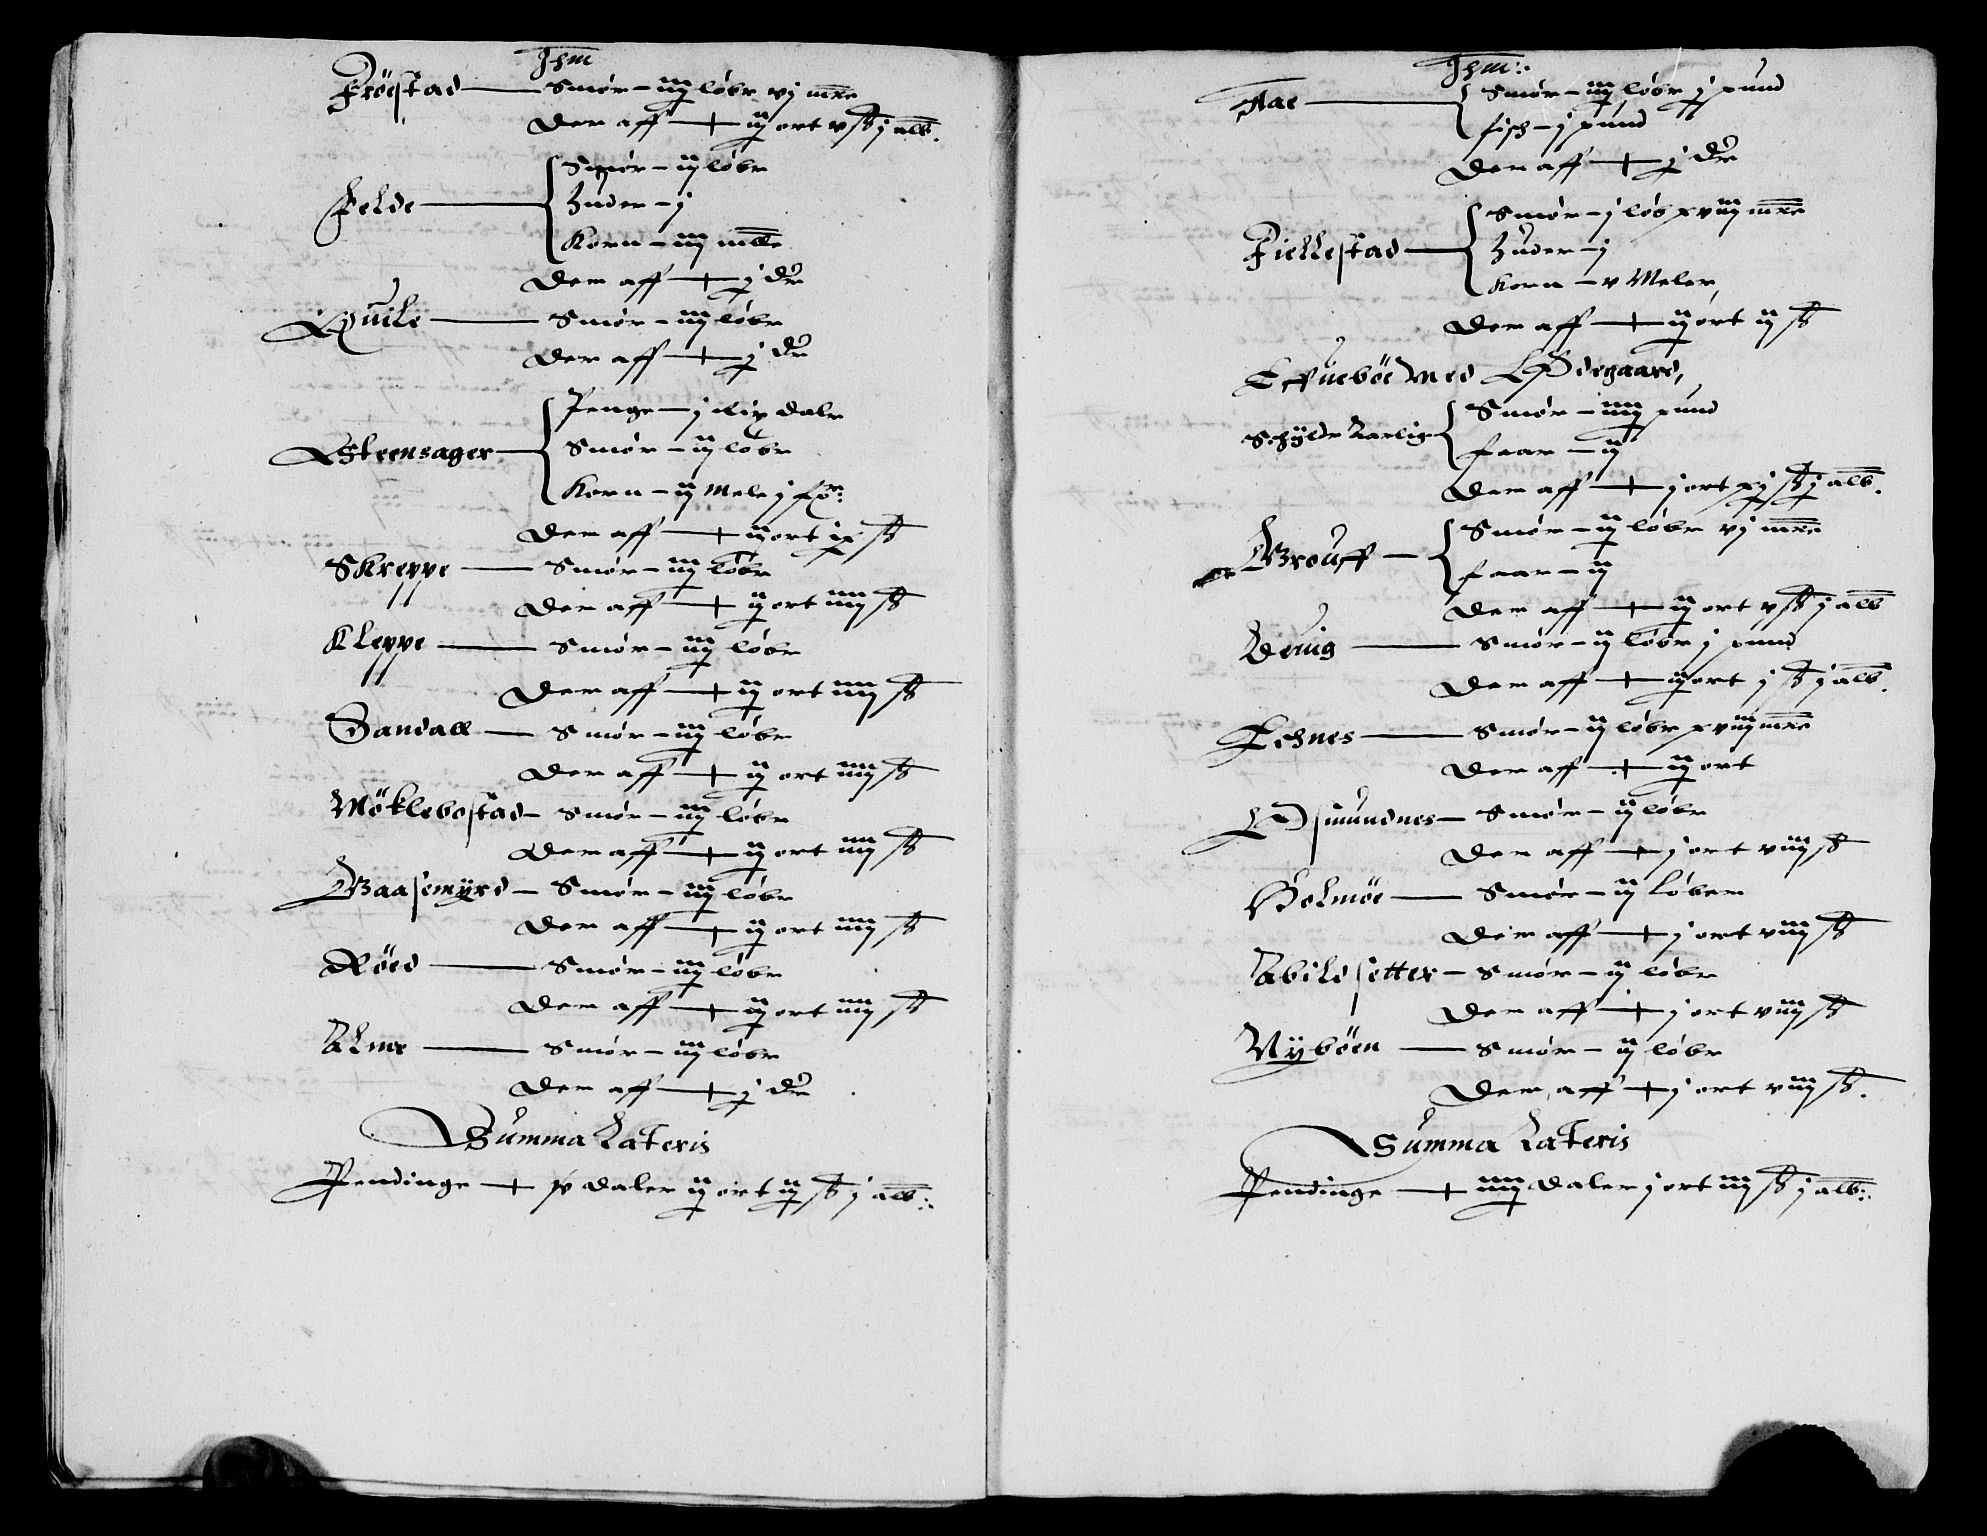 Ihm
Fröestad — Smör – iij löbr vj mrk
Der aff — ij ort v ß j alb.
Felde — Smör – ij löbr
Huder – j
Korn – iij melle
Der aff — j dlr
Quile — Smör – iij löbr
Der aff — j dlr
Steensager — Penge – j Rix dalr
Smör – ij löbr
Korn – ij Mele j
Der aff — ij ort ix ß
Skreppe — Smör – iij löbr
Der aff — ij ort iiij ß
Kleppe — Smör – iij löbr
Der aff — ij ort iiij ß
Sandall — Smör – iij löbr
Der aff — ij ort iiij ß
Möklebostad – Smör – iij löbr
Der aff — ij ort iiij ß
Baasemyrd – Smör – iij löbr
Der aff — ij ort iiij ß
Röed — Smör – iij löbr
Der aff — ij ort iiij ß
Alme — Smör – iij löbr
Der aff — j dlr
Summa Lateris
Pendinge — daler ij ort ij ß j alb:
Ihm:
Aae — Smör – iij löbr j pund
fisch – j pund
Der aff — j dlr
Fiellestad — Smör – j löb xviij mrk
Huder – j
Korn – v Meler
Der aff — ij ort ij ß
med Ödegaard,
Schylder Aarlig Smör – iiij pund
faar – ij
Der aff — j ort xj ß j alb.
Brouff — Smör – ij löbr vj mrk
faar – ij
Der aff — ij ort v ß j alb
— Smör – ij löbr j pund
Der aff — ij ort j ß j alb.
Eidsnes — Smör – ij löbr xviij mrk
Der aff — ij ort
Osmundnes – Smör – ij löbr
Der aff — j ort viij ß
Holmöe — Smör – ij Löber
Der aff — j ort viij ß
Abildsetter – Smör – ij löbr
Der aff — j ort viij ß
Nyböen — Smör – ij löbr
Der aff — j ort viij ß.
Summa Lateris
Pendinge — iiij daler j ort iij ß j alb: